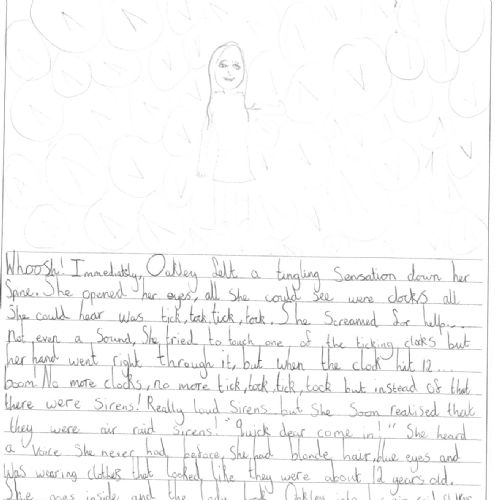 Whoosh! Immediately, Oakley felt a tingling sensation down her
Spine. She opened her eyes, all she could see were clocks all
She could hear was tick, tock, tick, tock. She screamed for help...
Not even a sound, She tried to touch one of the ticking clocks but
her hand went right through it, but when the clock hit 12...
boom! No more clocks, no more tick, tock, tick, tock but instead of that
there were sirens! Really loud sirens but she soon realised that
they were air raid sirens! "Quick dear come in!" She heard
a voice she never had before, She had blonde hair, blue eyes and
was wearing clothes that looked like they were about 12 years old.
She goes inside and the lady Oakley into